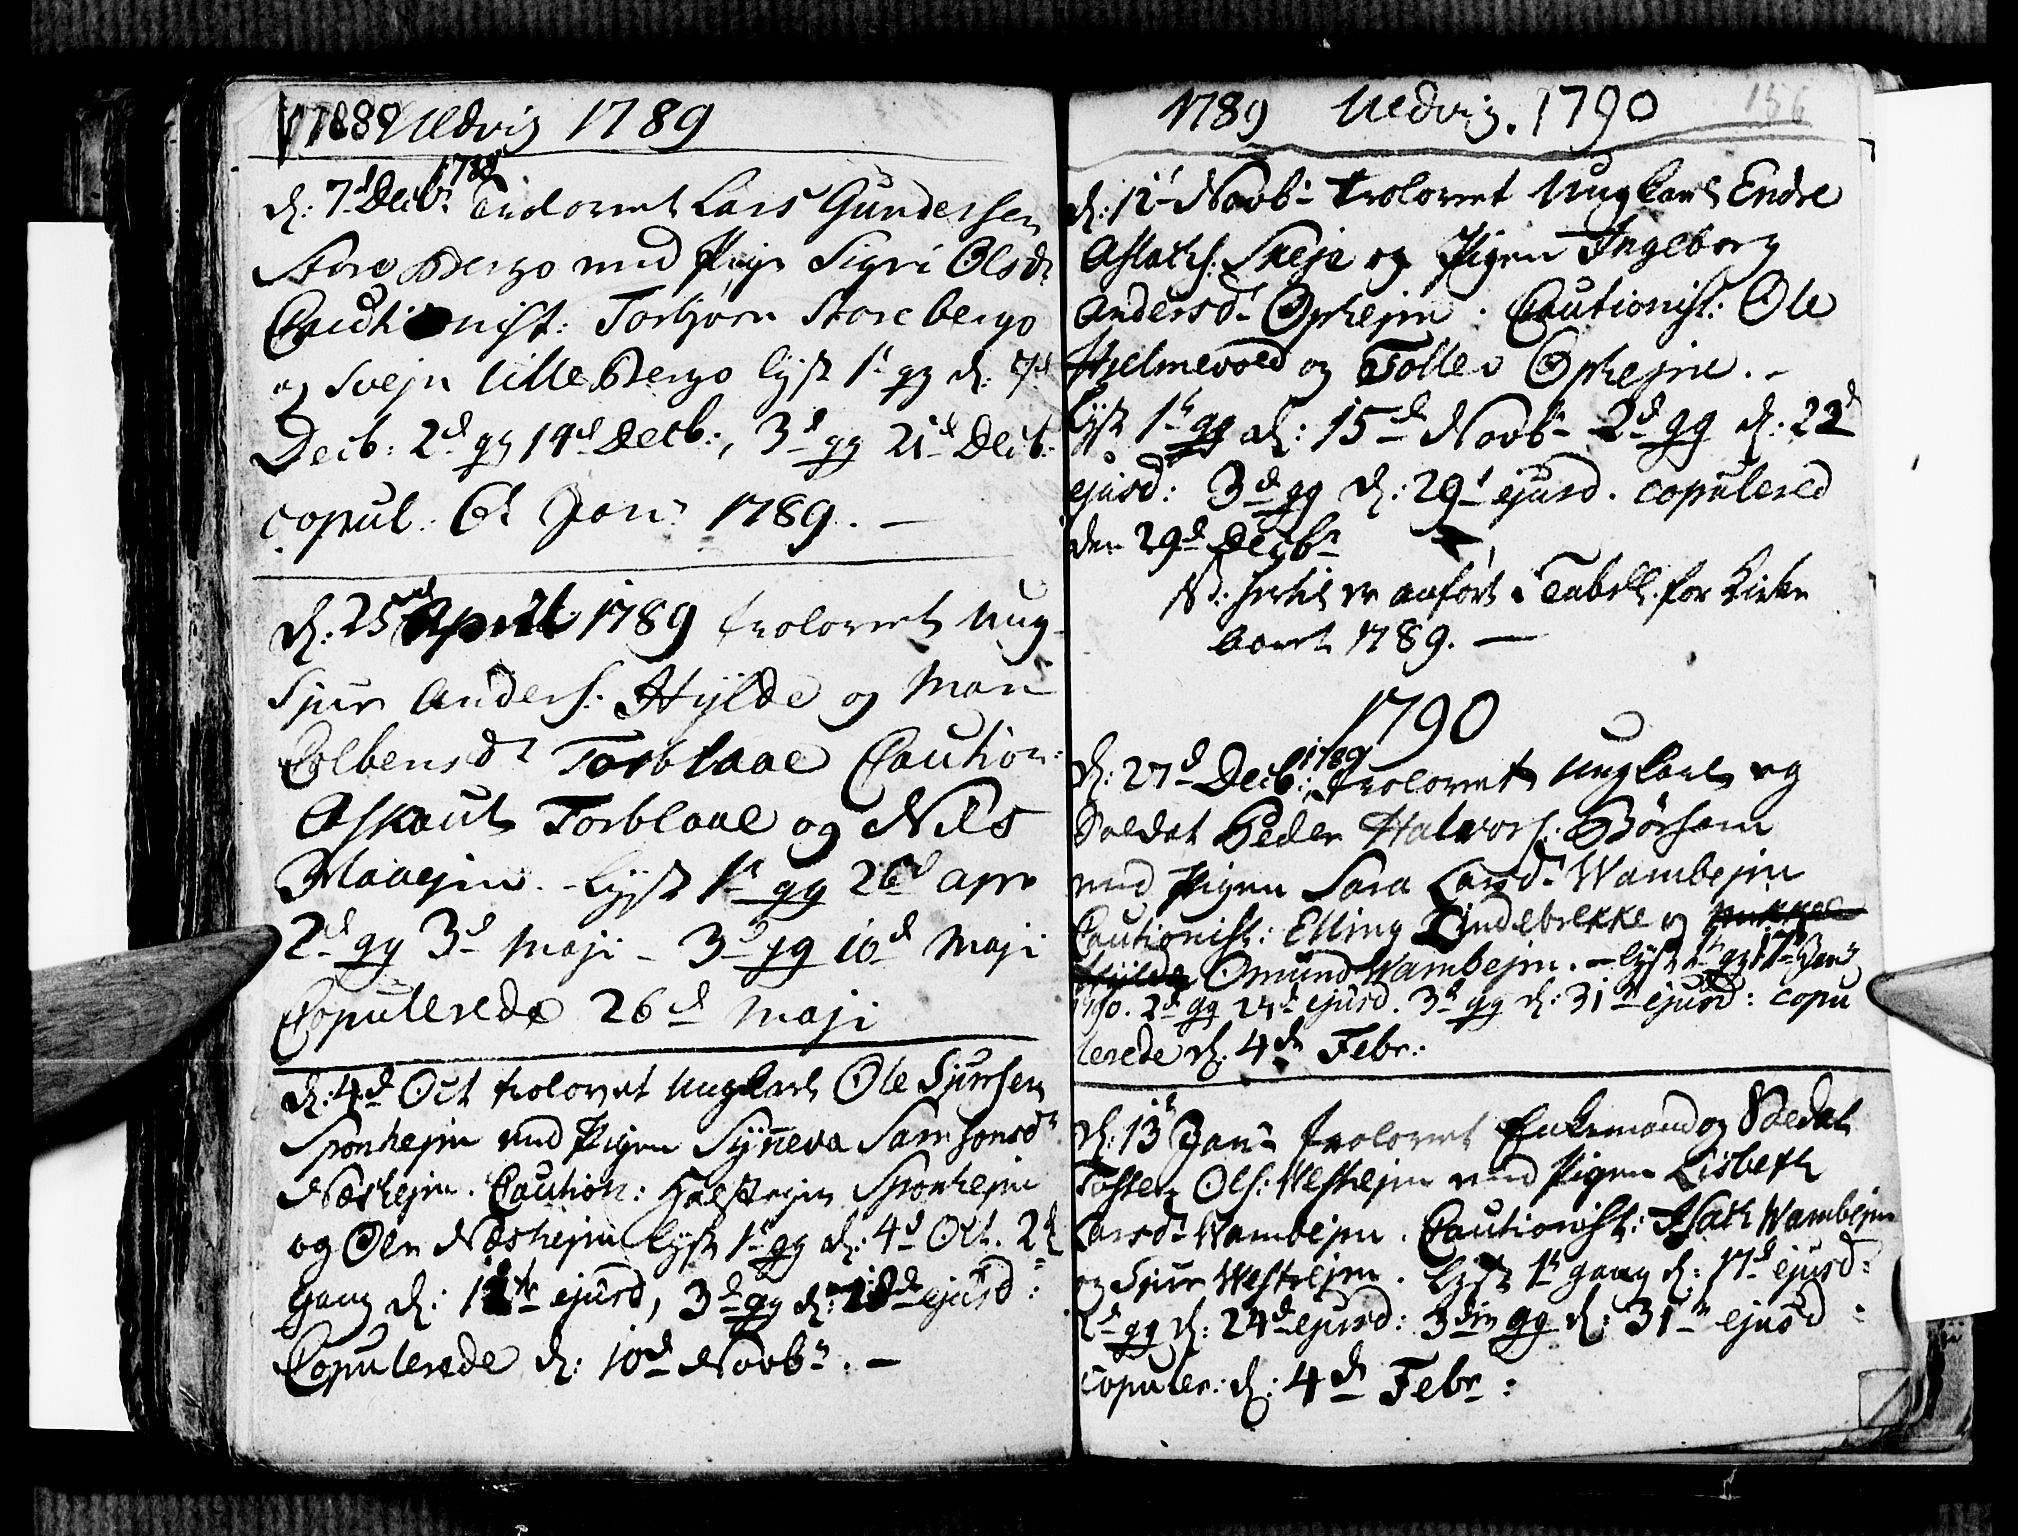 1789 Uldvig 1789
d: 7d Decbr 1788 trolovet Lars Gundersen
Store Bergo med Pige Sigri Olsdr
Cautionist: Torbjørn Store bergo
og Svejn Lille Bergo lyst 1t gg d: 7d
Decb: 2d gg 14d Decb:, 3d gg 21d Decb:
copul: 6t Janr 1789. —
d: 25d April 1789 trolovet ung-
Sjur Anders: Hylde og Mari
Colbensdr Torblaae Caution:
Askaut Torblaae og Niels
Maaejm. - lyst 1t gg 26d Apr
2d gg 3d Maji - 3d gg 10d Maji
Copulerede 26d Maji
d: 4d Oct trolovet ungkarl Ole Sjursen
Sponhejm med Pigen Synneva Samsonsdr
Næshejm. Caution: Halstejn Sponhejm
og Ole Næshejm lyst 1t gg d: 4d Oct. 2d
gang d: ejusd, 3d gg d: 18d ejusd:
Copulerede d: 10d Novbr. —
1789 Uldvig. 1790
156
d: 12t Novb- trolovet Ungkarl Endre
Aslachs: Skeje og Pigen Ingeborg
Andersdr Ophejm. Cautionist: Ole
Hjelmevold og Tollev Ophejm. -
lyst 1t gg d: 15d Novb- 2d gg d: 22d
ejusd: 3d gg d: 29d ejusd. copulered
den 29d Decbr
N: hertil er anført i Tabell: for Kirke
aaret 1789. —
1790
d: 27d Decb: 1789 trolovet ungkarl og
Soldat Peder Halvors: Børsem
med Pigen Sara Larsdr Wambejm
Cautionist: Elling Lindebrekke og
Hylde Omund Wambejm. - lyst 1t gg 17d Janr
1790. 2d gg 24d ejusd. 3d gg d: 31d ejusd: copu
lerede d: 4d Febr:
d: 13d Janr trolovet Enkemand og Soldat
Tosten Ols: Westrejm med Pigen Lisbeth
Larsdr Wambejm. Cautionist: Isach Wambejm
og Sjur Westrejm. lyst 1t gang d: 17d ejusd:
2d gg d: 24d ejusd: 3die gg d: 31te ejusd:
copuler: d: 4d Febr: